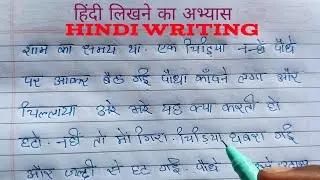 हिंदी लिखने का अभ्यास
HINDI WRITING
शाम का समय था. एक चिड़िया नन्हे पौधे
पर आकर बैठ गई पौधा काँपने लगा और
चिल्लाया अरे अरे यह क्या करती हो
हटो. नहीं तो मैं गिरा. चिड़िया घबरा गई
और जल्दी से हट गई. पौधे